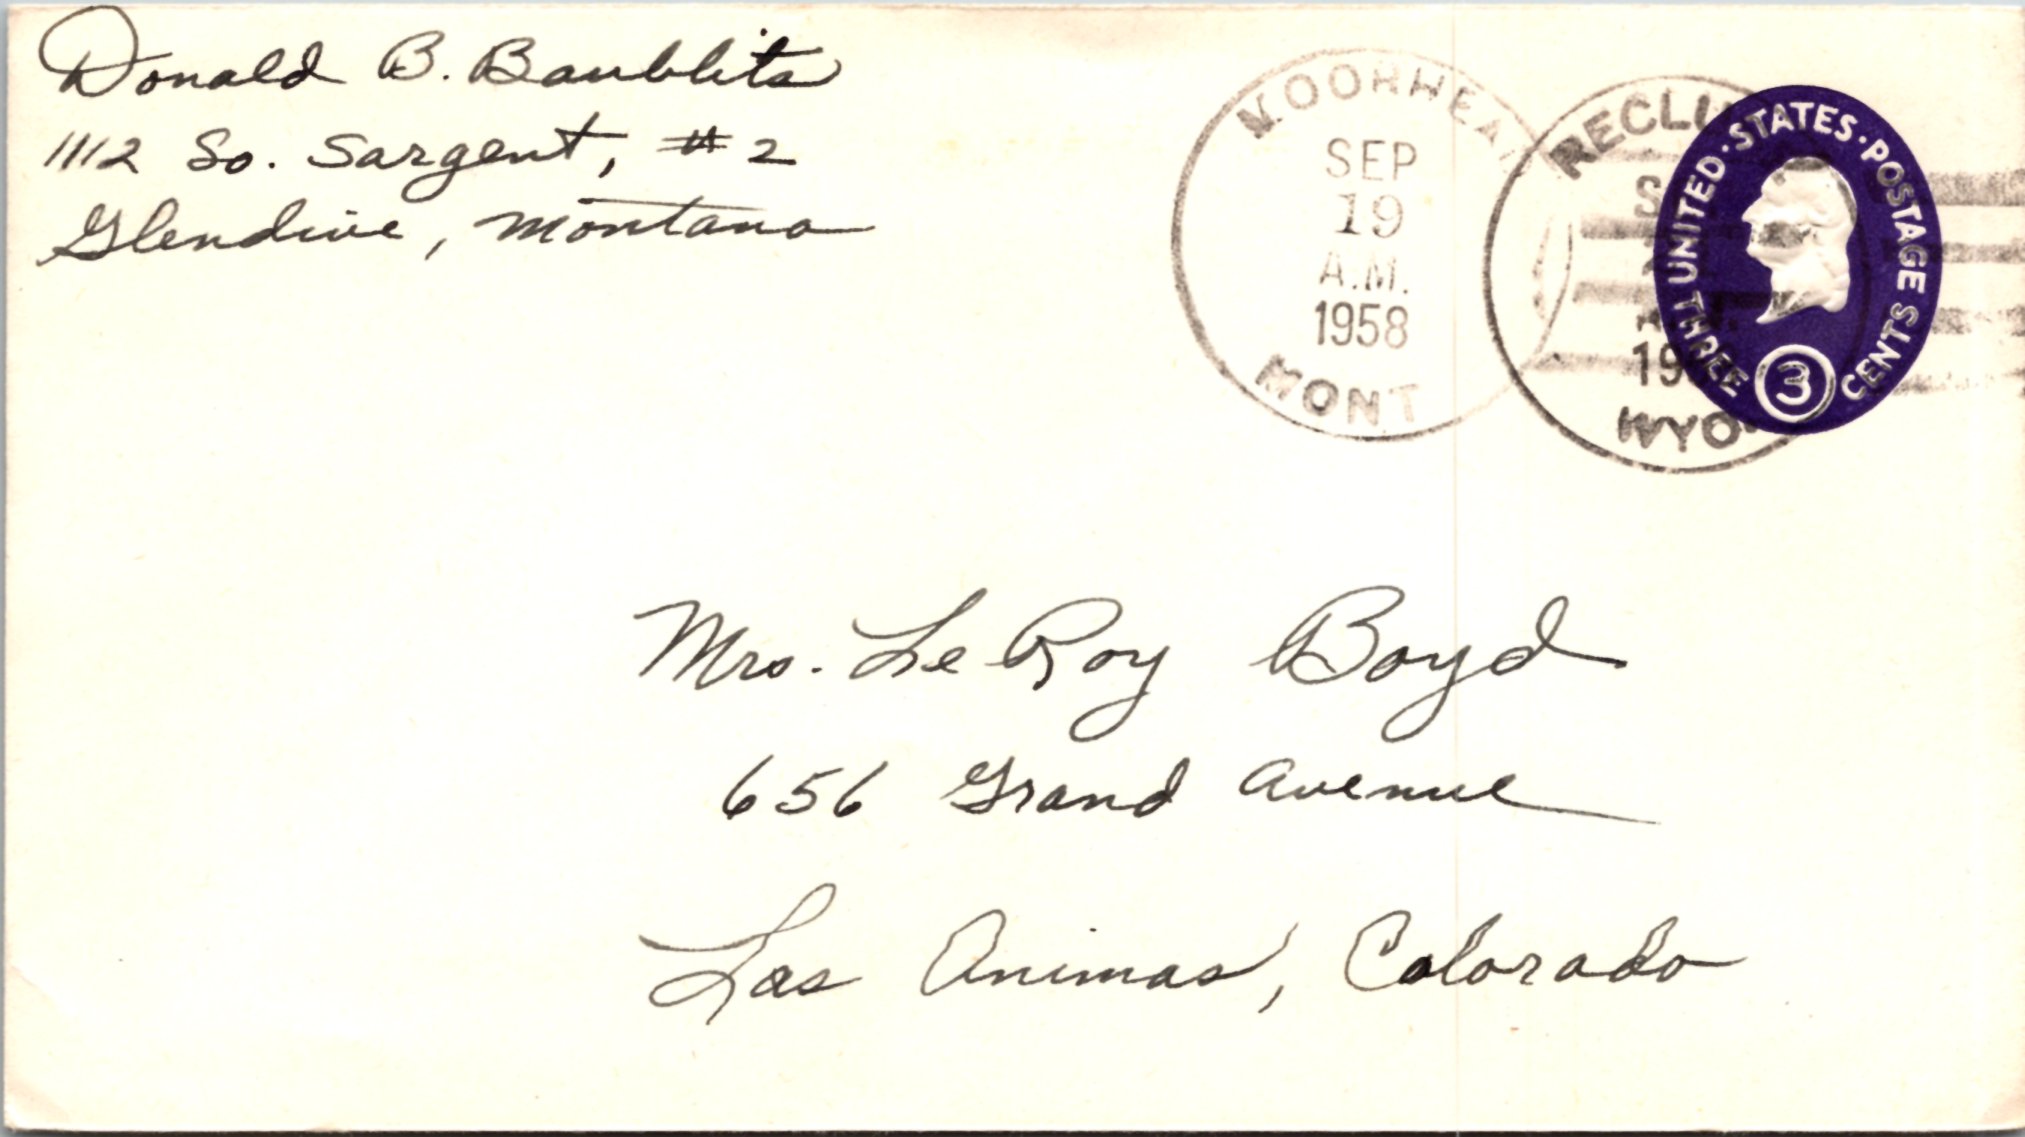 Donald B. Baublits
1112 So. Sargent, #2
Glendive, Montana
MOORHEAD
SEP
19
A.M.
1958
MONT
WYO.
UNITED · STATES · POSTAGE
THREE 3 CENTS
Mrs. LeRoy Boyd
656 Grand Avenue
Las Animas, Colorado